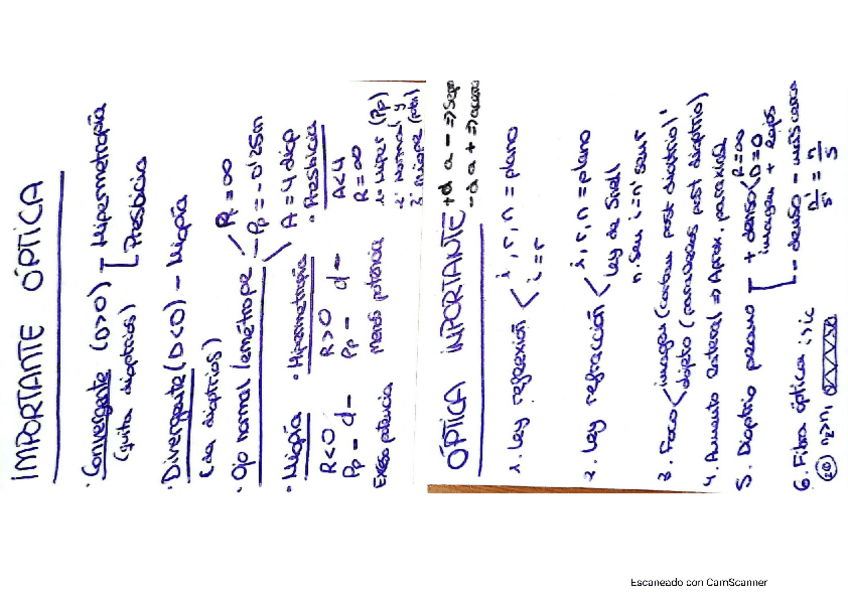 IMPORTANTE ÓPTICA
· Convergente (D>0) - Hipermetropía
(quita dioptrías) Presbicia
· Divergente (D<0) - Miopía
(da dioptrías)
· Ojo normal / emétrope
Pr = ∞
Pp = -0'25m
A = 4 diop
· Miopía
R<0
Pp - d -
Exceso potencia
· Hipermetropía
R>0
Pp - d -
Menos potencia
· Presbicia
A<4
R=∞
1º Hiper (Pp)
2º Normal y
3º miope
ÓPTICA IMPORTANTE
+ d a - =>
- d a + =>
1. Ley reflexión
i, r, n = plano
i = r
2. Ley refracción
i, r, n = plano
Ley de Snell
n · sen i = n' sen r
3. Foco
imagen (cortan post dioptrio)
objeto (paralelos post dioptrio)
4. Aumento lateral => Aprox. paraxial
5. Dioptrio plano
R=∞
D=0
+ denso
imagen + lejos
- denso - más cerca
n'/s' = n/s
6. Fibra óptica i > ic
n2>n1
Escaneado con CamScanner